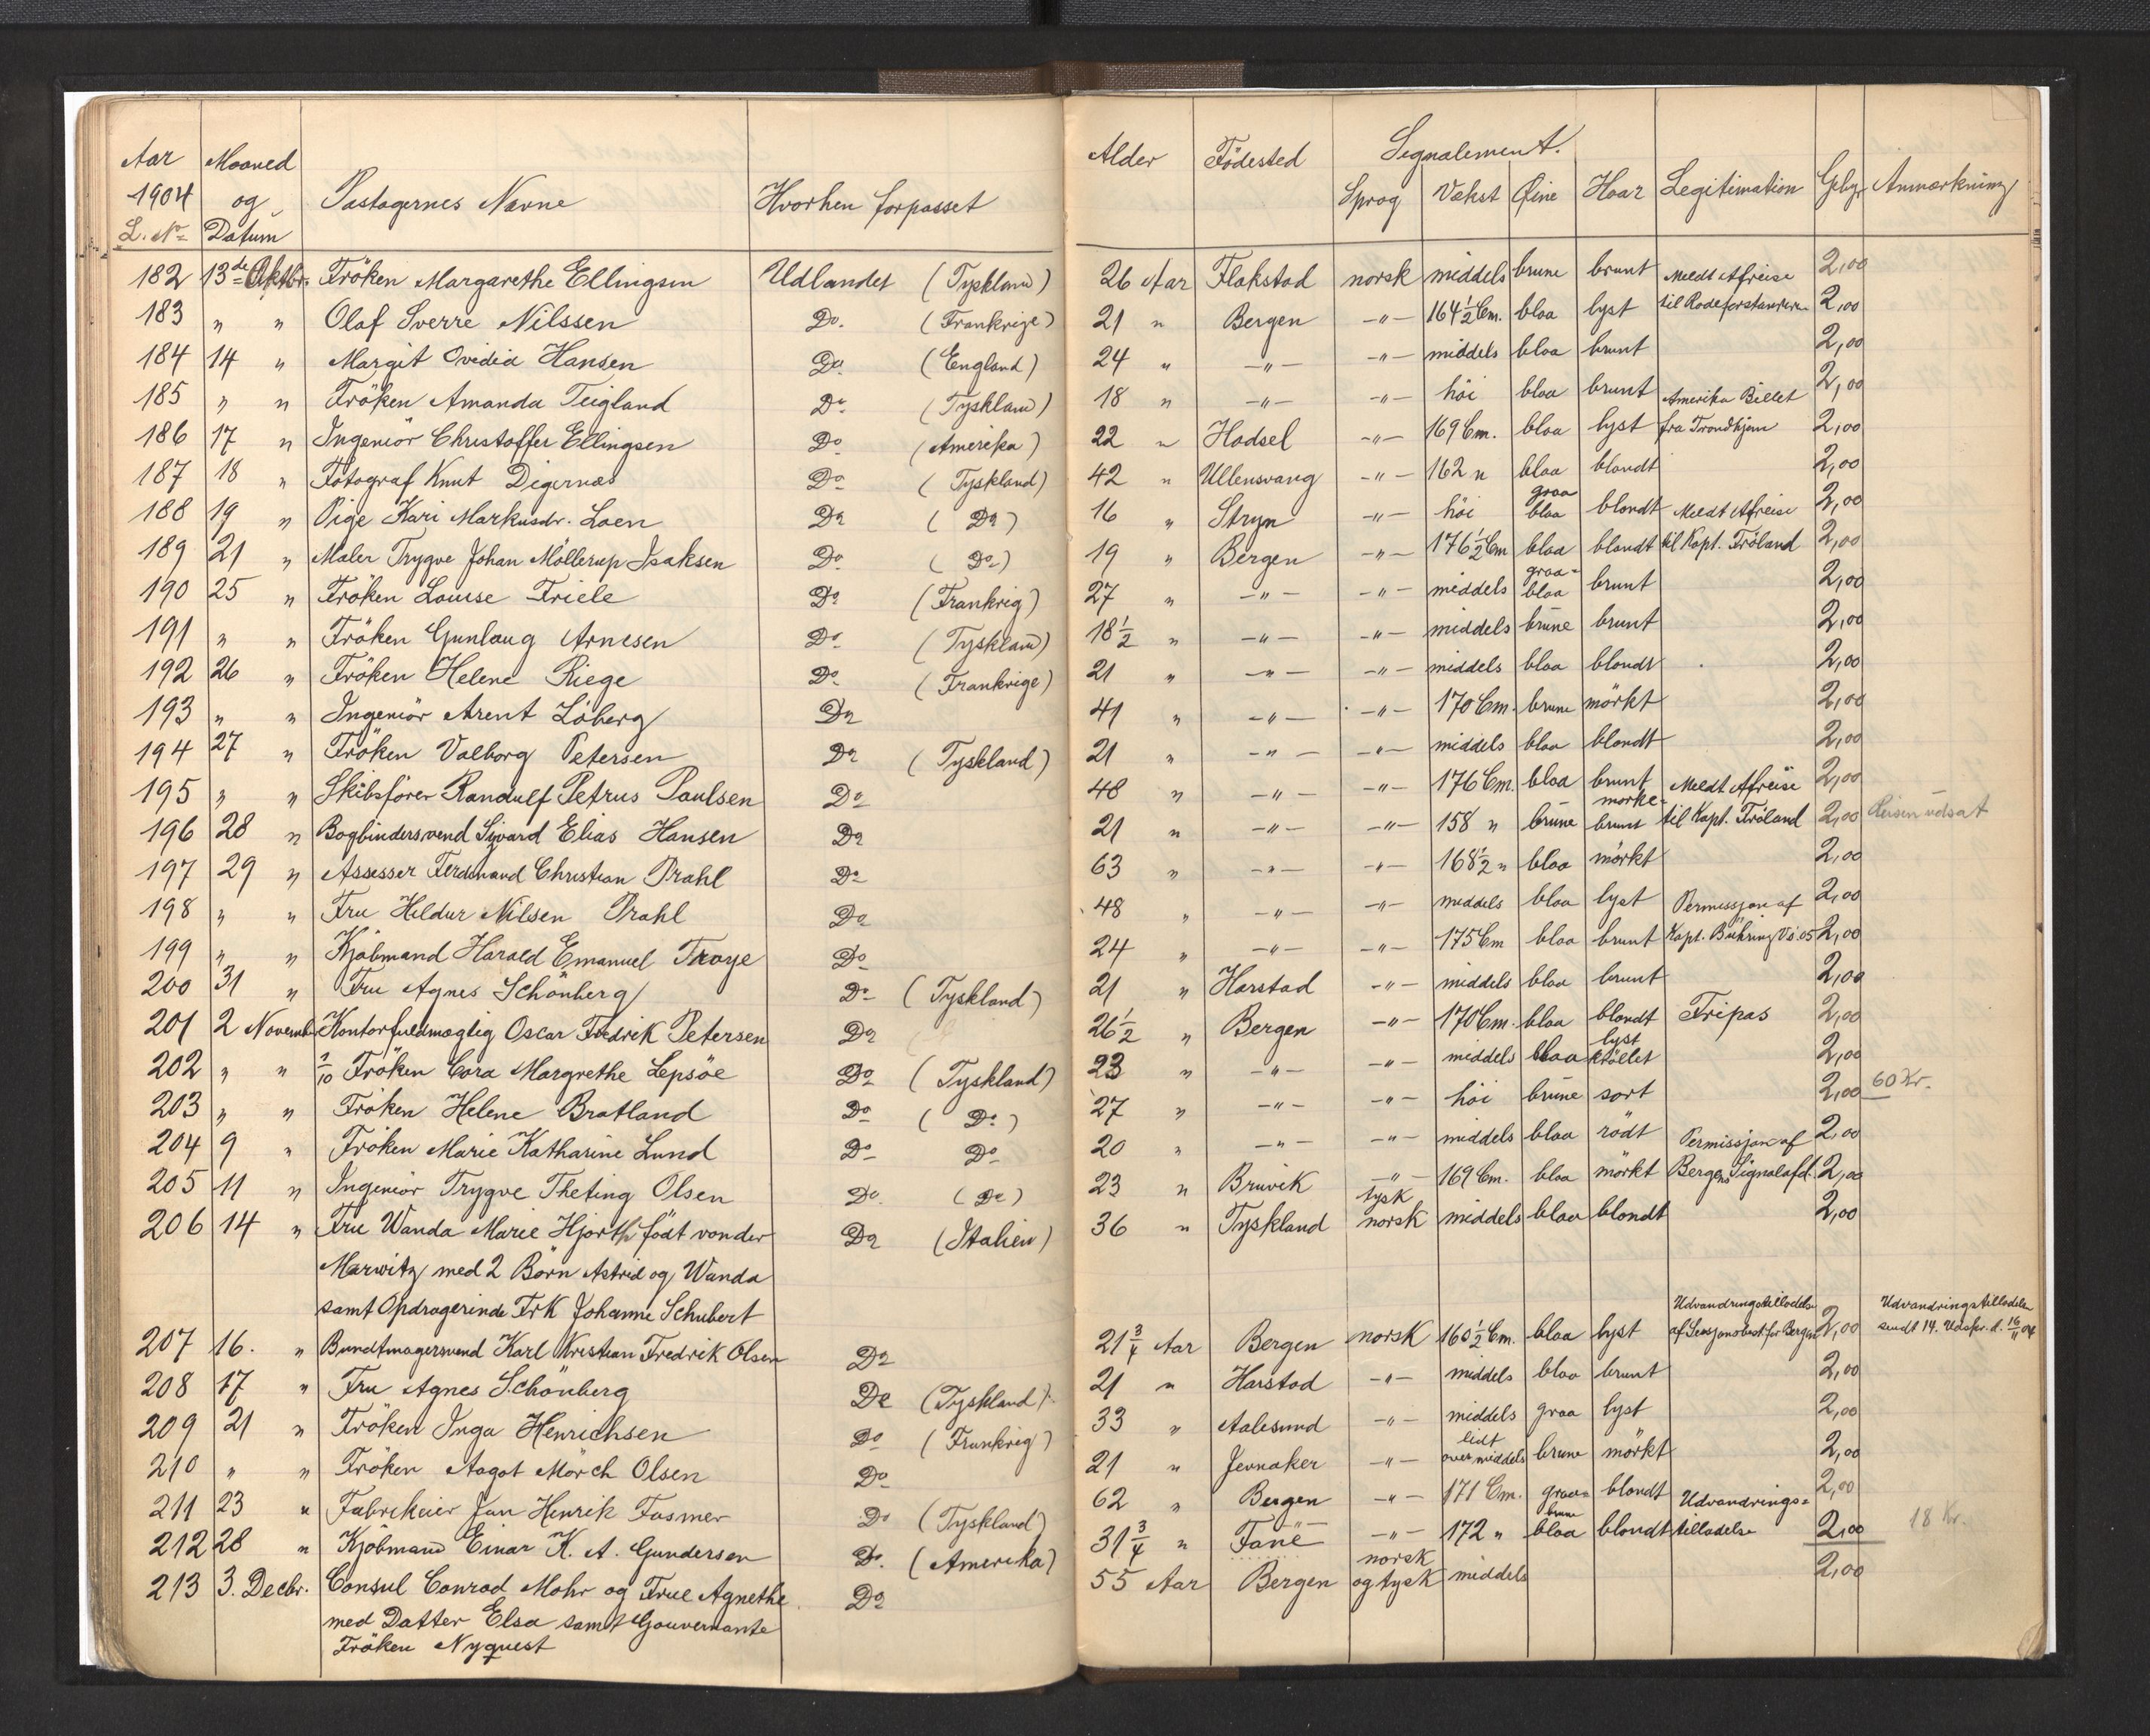 Aar Maaned Alder Födested Signalement.
1904 og Pastagernes Navne Hvorhen forpasset Sprog Vækst Øine Haar Legitimation Gebyr Anmærkning
L. No Datum
182 13de Oktbr. Fröken Margarethe Ellingsen Udlandet (Tyskland) 26 Aar Flakstad norsk middels brune brunt Meldt Afreise 2,00
183 " " Olaf Sverre Nilssen Do. (Frankrige) 21 " Bergen -"- 164 1/2 Cm. blaa lyst til Rodeforstanderen 2,00
184 14 " Margit Ovidia Hansen Do (England) 24 " -"- -"- middels blaa brunt 2,00
185 " " Fröken Amanda Teigland Do (Tyskland) 18 " -"- -"- höi blaa brunt Amerika Billet 2,00
186 17 " Ingeniör Christoffer Ellingsen Do (Amerika) 22 " Hadsel -"- 169 Cm. blaa lyst fra Trondhjem 2,00
187 18 " Fotograf Knut Digernæs Do (Tyskland) 42 " Ullensvang -"- 162 " blaa blondt 2,00
188 19 " Pige Kari Markusdr. Loen Do (Do) 16 " Stryn -"- höi graa blaa blondt Meldt Afreise 2,00
189 21 " Maler Trygve Johan Möllerup Isaksen Do (Do) 19 " Bergen -"- 176 1/2 Cm blaa blondt til Kapt. Fröland 2,00
190 25 " Fröken Louise Friele Do (Frankrig) 27 " -"- -"- middels graa- blaa brunt 2,00
191 " " Fröken Gunlaug Arnesen Do (Tyskland) 18 1/2 " -"- -"- middels brune brunt 2,00
192 26 " Fröken Helene Riege Do (Frankrige) 21 " -"- -"- middels blaa blondt 2,00
193 " " Ingeniör Arent Löberg Do 41 " -"- -"- 170 Cm. brune mörkt 2,00
194 27 " Fröken Valborg Petersen Do (Tyskland) 21 " -"- -"- middels blaa blondt 2,00
195 " " Skibsförer Randulf Petrus Paulsen Do 48 " -"- -"- 176 Cm. blaa brunt Meldt Afreise 2,00
196 28 " Bogbindersvend Sigvard Elias Hansen Do 21 " -"- -"- 158 " brune mörke- brunt til Kapt. Fröland 2,00 Reisen udsat
197 29 " Assessor Ferdinand Christian Prahl Do 63 " -"- -"- 168 1/2 " blaa mörkt 2,00
198 " " Fru Hildur Nilsen Prahl Do 48 " -"- -"- middels blaa lyst Permission af 2,00
199 " " Kjöbmand Harald Emanuel Troye Do 24 " -"- -"- 175 Cm blaa brunt Kapt. Bühring 05 2,00
200 31 " Fru Agnes Schönberg Do (Tyskland) 21 " Harstad -"- middels blaa brunt 2,00
201 2 Novembr Kontorfuldmægtig Oscar Fredrik Petersen Do 26 1/2 " Bergen -"- 170 Cm. blaa blondt Fripas 2,00
202 " " 7/10 Fröken Cora Margrethe Lepsöe Do (Tyskland) 23 " -"- -"- middels blaa lyst kröllet 2,00
203 " " Fröken Helene Bratland Do (Do) 27 " -"- -"- höi brune sort 2,00 60 Kr.
204 9 " Fröken Marie Katharine Lund Do Do 20 " -"- -"- middels blaa rödt Permissjon af 2,00
205 11 " Ingeniör Trygve Theting Olsen Do. (Do) 23 " Bruvik -"- 169 Cm. blaa mörkt Bergens Signalafd. 2,00
206 14 " Fru Wanda Marie Hjorth födt von der Do (Italien) 36 " Tyskland tysk norsk middels blaa blondt 2,00
Marwitz med 2 Börn Astrid og Wanda
samt Opdragerinde Frk Johanne Schubert
207 16. " Bundtmagersvend Karl Kristian Fredrik Olsen Do 21 3/4 Aar Bergen norsk 160 1/2 Cm. blaa lyst Udvandringstilladelse af Sessjonsbest. for Bergen 2,00 Udvandringstilladelse sendt 14. Udskr. d. 16/11 04
208 17 " Fru Agnes Schönberg Do (Tyskland) 21 " Harstad -"- middels blaa brunt 2,00
209 21 " Fröken Inga Henrichsen Do (Frankrig) 33 " Aalesund -"- middels graa lyst 2,00
210 " " Fröken Aagot Mörch Olsen Do 21 " Jevnaker -"- lidt over middels brune mörkt 2,00
211 23 " Fabrikeier Jan Henrik Fasmer Do (Tyskland) 62 " Bergen -"- 171 Cm. graa blondt Udvandrings= 2,00
212 28 " Kjöbmand Einar K. A. Gundersen Do. (Amerika) 31 3/4 " Fane -"- 172 " brune blaa blondt tilladelse 2,00 18 Kr.
213 3. Decbr. Consul Conrad Mohr og Frue Agnethe Do 55 Aar Bergen norsk og tysk middels 2,00
med Datter Elsa samt Gouvernante
Fröken Nyquest